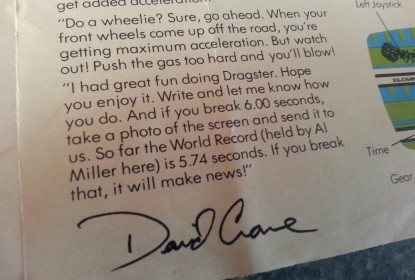 get added acceleration.
"Do a wheelie? Sure, go ahead. When your
front wheels come up off the road, you're
getting maximum acceleration. But watch
out! Push the gas too hard and you'll blow!
"I had great fun doing Dragster. Hope
you enjoy it. Write and let me know how
you do. And if you break 6.00 seconds,
take a photo of the screen and send it to
us. So far the World Record (held by Al
Miller here) is 5.74 seconds. If you break
that, it will make news!"
David Crane
Left Joystick
Time
Gear